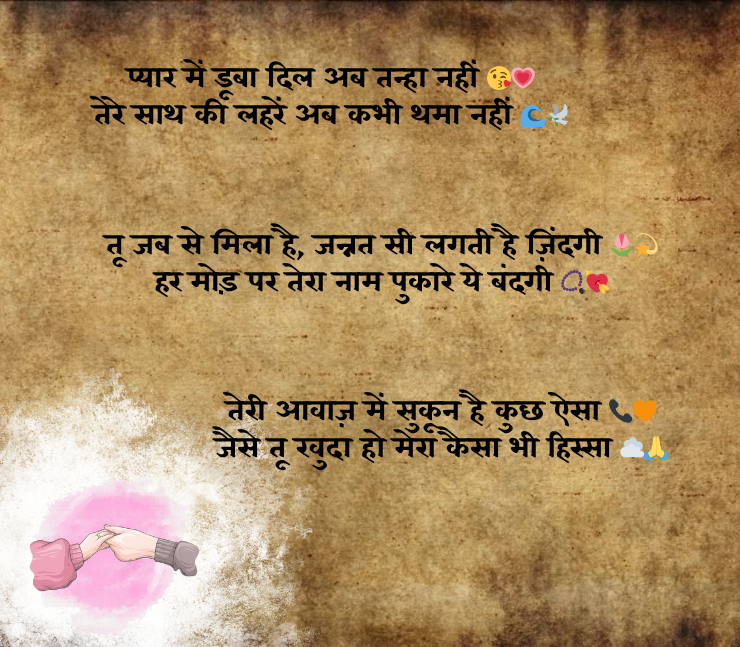 प्यार में डूबा दिल अब तन्हा नहीं 😘💗
तेरे साथ की लहरें अब कभी थमा नहीं 🌊🕊️
तू जब से मिला है, जन्नत सी लगती है ज़िंदगी 🌷💫
हर मोड़ पर तेरा नाम पुकारे ये बंदगी 📿💘
तेरी आवाज़ में सुकून है कुछ ऐसा 📞🧡
जैसे तू खुदा हो मेरा कैसा भी हिस्सा ☁️🙏